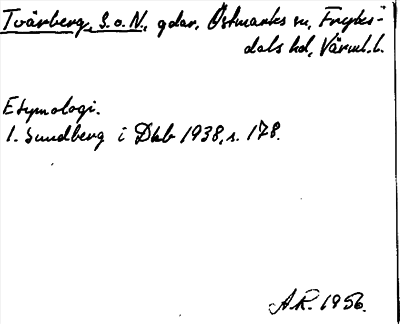 Tvärberg, S. o. N., gdar, Östmarks sn, Fryks-
dals hd, Värml. l.
Etymologi.
I. Lundberg i Dkb 1938, s. 178.
A.R. 1956.